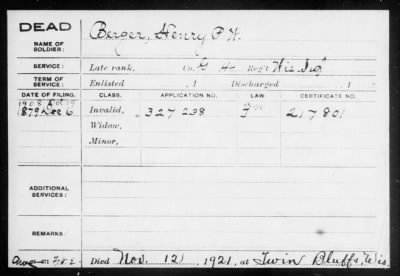 DEAD
NAME OF SOLDIER: Berger, Henry P. W.
SERVICE: Late rank, Co. G 40 Reg't Wis Inf
TERM OF SERVICE: Enlisted , 1 Discharged , 1
DATE OF FILING. CLASS. APPLICATION NO. LAW CERTIFICATE NO.
1908 Oct 19
1879 Dec 6 Invalid, 327 238 217 801
Widow,
Minor,
ADDITIONAL SERVICES:
REMARKS:
Died Nov. 12, 1921, at Twin Bluffs, Wis.